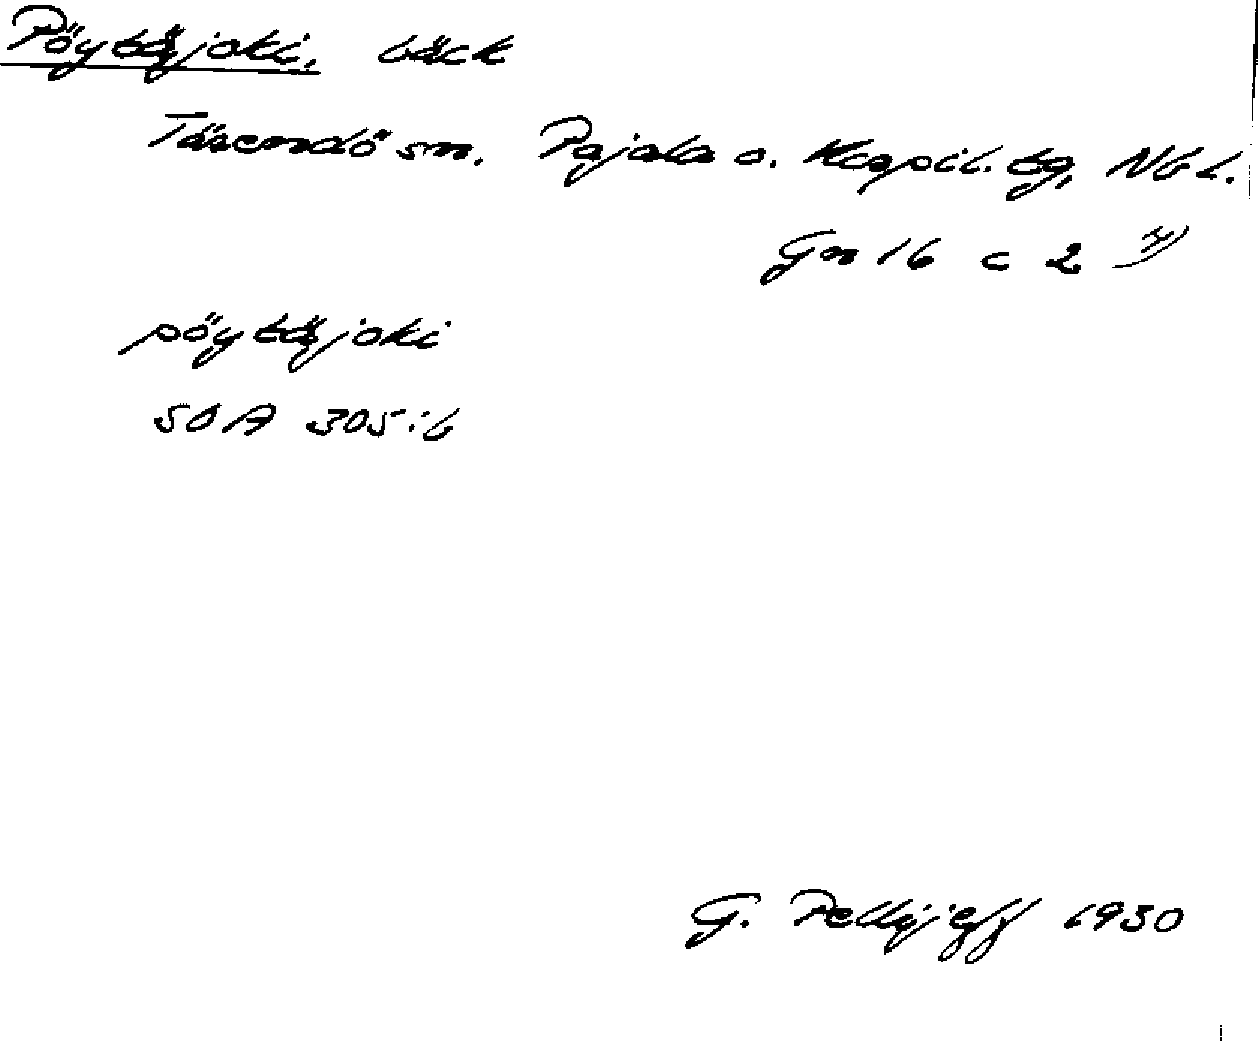 Pöytäjoki, bäck
Tärendö sn. Pajala o. Korpil. tg, Nb l.
Gn 16 c 2
pöytäjoki
SOA 305:6
G. Pellijeff 1930